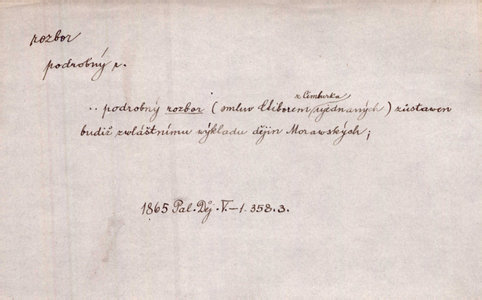 rozbor
podrobný r.
.. podrobný rozbor (smluv Ctiborem z Cimburka ujednaných) zůstawen
budiž zwláštnímu výkladu dějin Morawských;
1865 Pal. Děj. V.–1. 358.3.